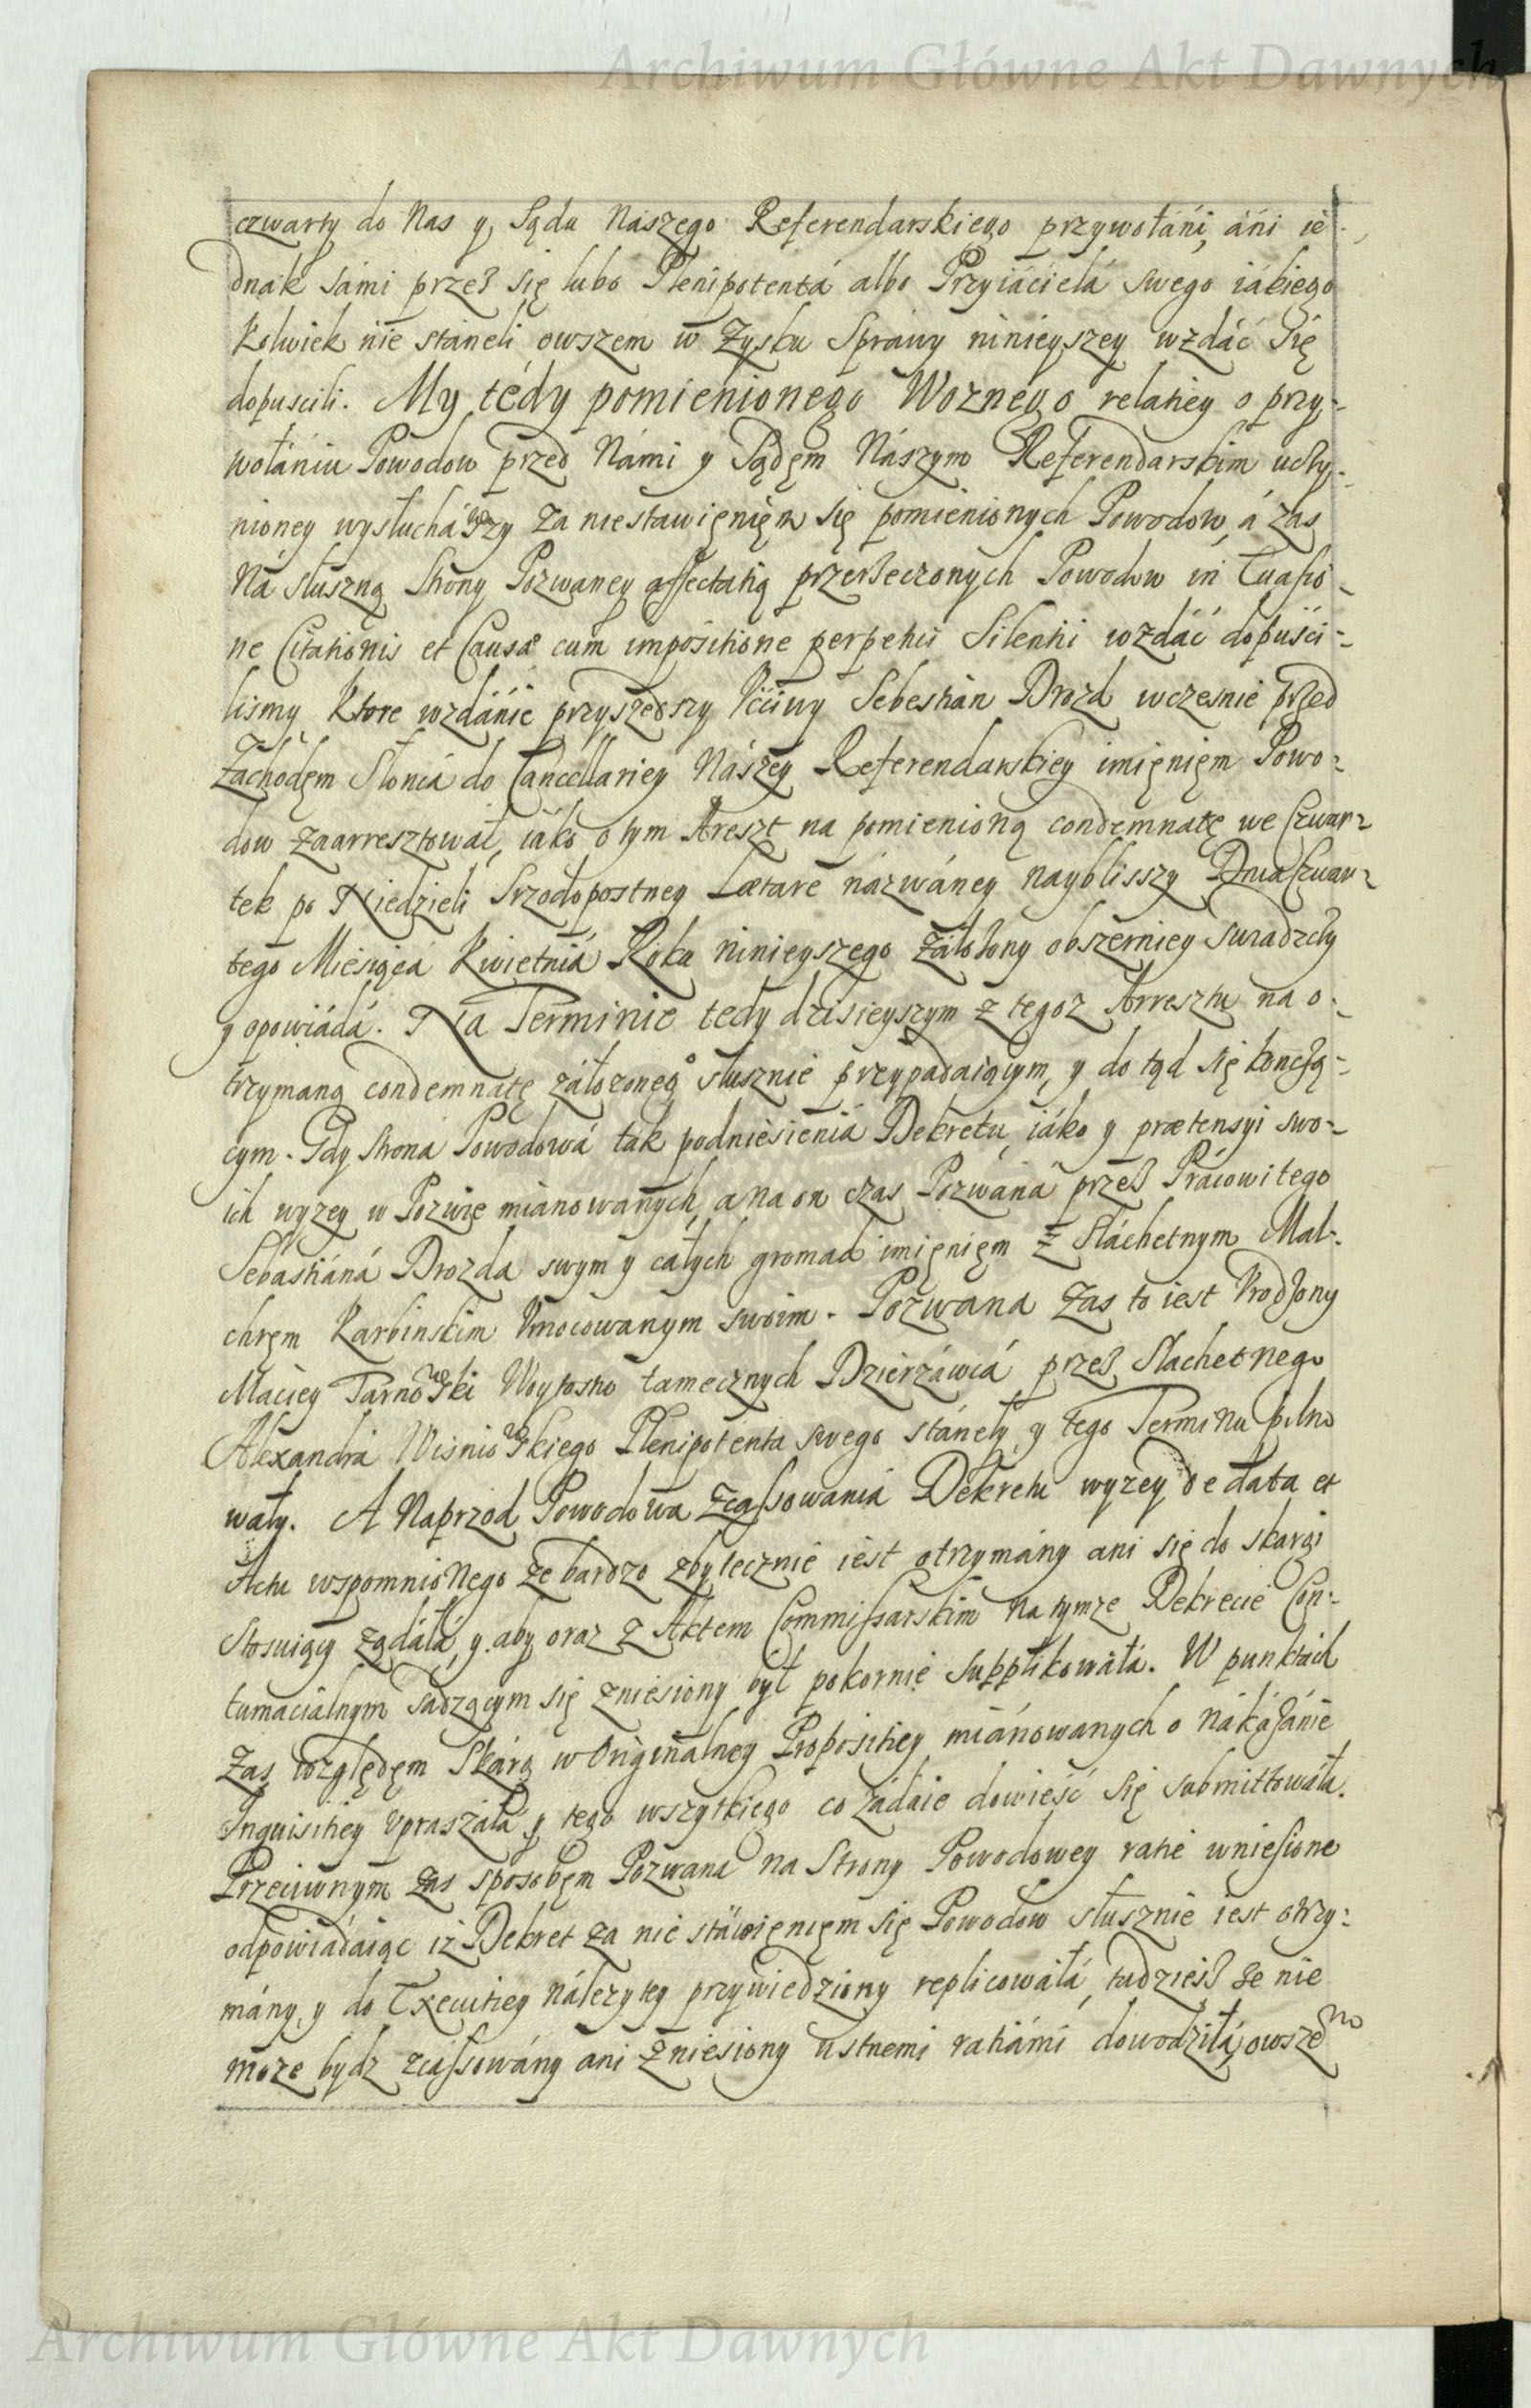 Archiwum Główne Akt Dawnych
czwarty do Nas y Sądu Naszego Referendarskiego przywołáni, áni ie-
dnák sámi przez się lubo Plenipotentá albo Przyiáciela swego iákiego
kolwiek nie staneli owszem w Zysku Spráwy ninieyszey wzdáć się
dopuscili. My tedy pomienionego Woznego relatiey o przy-
wołániu Powodow przed Námi y Sądęm Nászym Referendarskim uczy-
nioney wysłucháwszy za niestawięnięm się pomienionych Powodow, á zas
Ná słuszną Strony Pozwaney affectatią przerzeczonych Powodow in Evasio-
ne Citationis et Causæ cum impositione perpetui Silentii wzdáć dopusci-
lismy ktore wzdánie przyszedszy Vćciwy Sebestian Drozd wczesnie przed
Zachodęm Słońca do Cancellariey Nászey Referendarskiey imięnięm Powo-
dow zaarresztował, iáko o tym Areszt na pomienioną condemnatę we Czwar-
tek po Niedzieli Srzodopostney Lætare názwáney nayblisszy Dnia Czwar-
tego Miesiąca Kwietniá Roku ninieyszego záłożony obszerniey swiadczy
y opowiádá. Na Terminie tedy dzisieyszym z tegoz Arresztu na o-
trzymaną condemnatę záłozonego słusznie przypadaiącym, y do tąd się kończą-
cym. Gdy Strona Powodowá tak podniesieniá Dekretu, iáko y prætensyi swo-
ich wyzey w Pozwie mianowanych, a na on czas Pozwána przez Prácowitego
Sebastiáná Drozda swym y cáłych gromad imięnięm z Slachetnym Mal-
chręm Karbinskim Vmocowanym swoim. Pozwana zas to iest Vrodzony
Maciey Tarnowski Woytostw tamecznych Dzierzáwcá przez Slachetnego
Alexandra Wisniowskiego Plenipotenta swego stáneły y tego Terminu pilno
wały. A Naprzod Powodowa zcassowania Dekretu wyzey de data et
Actu wspomnionego ze bardzo zbytecznie iest otrzymány ani się do skargi
Stosuiący ządáłá, y aby oraz z Aktem Commissarskim na tymze Dekrecie Con-
tumacialnym sadzącym się zniesiony był pokornie supplikowáłá. W punktách
zas względęm Skárg w Originalney Propositiey miánowanych o nákázánie
Inquisitiey vpraszáłá y tego wszytkiego co żádáie dowieść się submittowáłá.
Przeciwnym zas sposobęm Pozwana na Strony Powodowey ratie wniesione
odpowiádaiąc iz Dekret za nie stáwięnięm się Powodow słusznie iest otrzy-
mány, y do Exekutiey nálezytey przywiedziony replicowáłá, tudziesz że nie
moze bydz zcassowány ani zniesiony ustnemi ratiámi dowodziłá, owszem
Archiwum Główne Akt Dawnych